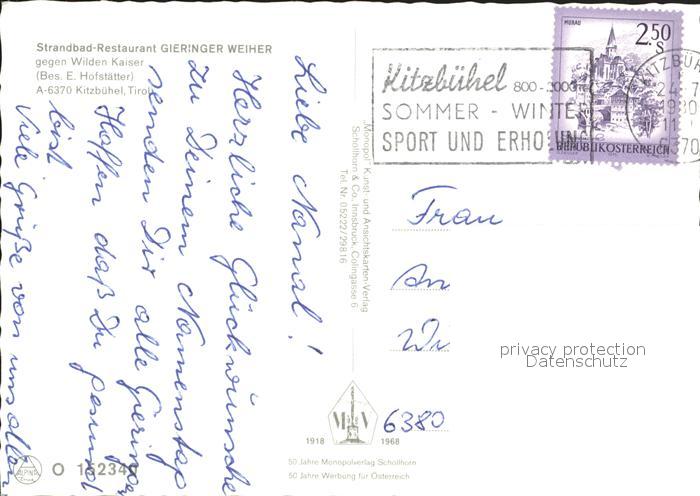 Strandbad-Restaurant GIERINGER WEIHER
gegen Wilden Kaiser
(Bes. E. Hofstätter)
A-6370 Kitzbühel, Tirol
Liebe Nanal!
Herzliche Glückwünsche
zu Deinem Namenstag
senden Dir alle Gieringer
Hoffen daß Du gesund
bist
Viele Grüße von uns allen
„Monopol" Kunst- und Ansichtskarten-Verlag
Schollhorn & Co. Innsbruck, Colingasse 6
Tel. Nr. 05222/29816
MURAU
2.50
S
REPUBLIK ÖSTERREICH
Kitzbühel 800-3000
SOMMER - WINTER
SPORT UND ERHOLUNG
KITZBÜH
24.-7
11
370
Frau
An
Wi
privacy protection
Datenschutz
6380
1918 1968
50 Jahre Monopolverlag Schollhorn
50 Jahre Werbung für Österreich
ALPINA
O 152340